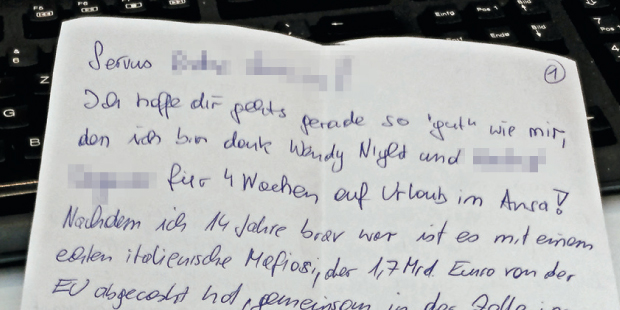 Servus
①
Ich hoffe dir gehts gerade so 'gut' wie mir,
den ich bin dank Wendy Night und
für 4 Wochen auf Urlaub im Ansa!
Nachdem ich 14 Jahre brav war ist es mit einem
echten italienische Mafiosi, der 1,7 Mrd. Euro von der
EU abgecasht hat, gemeinsam in der Zelle
Einfg
Pos 1
Ende
Z
G
B